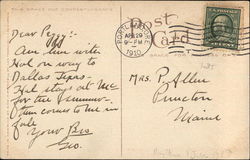 THIS SPACE FOR CORRESPONDENCE
Post
Card
PORTLAND, MAINE
APR 29
9-PM
1910
Dear Peggy:-
Am here with
Hal on way to
Dallas Texas.
Hal stays at
for the summer.
then comes to me in
fall
Your
Geo.
Mrs. P. Allen
Princeton
Maine